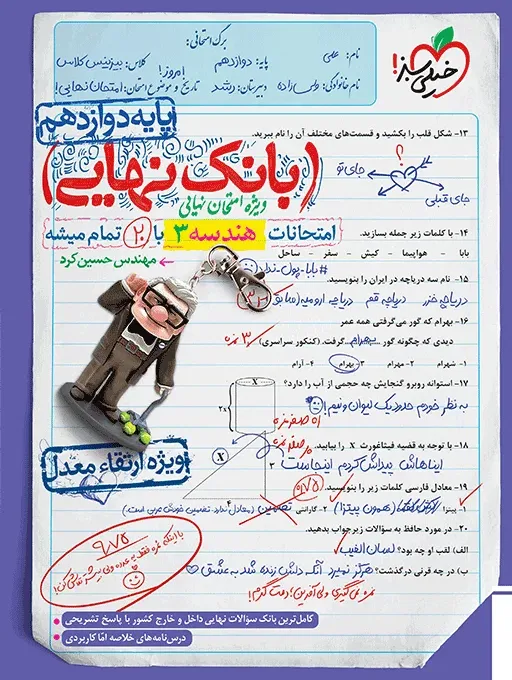 برگ امتحانی:
خیلی سبز!
نام: علی
پایه: دوازدهم
کلاس: بیزینس کلاس
نام خانوادگی: ولی‌زاده
دبیرستان: رشد
تاریخ و موضوع امتحان: امتحان نهایی! امروز!
پایه دوازدهم
۱۳- شکل قلب را بکشید و قسمت‌های مختلف آن را نام ببرید.
؟
جای تو
جای قبلی
(بانک نهایی)
ویژه امتحان نهایی
امتحانات هندسه ۳ با ۲۰ تمام میشه
مهندس حسین کرد
۱۴- با کلمات زیر جمله بسازید.
بابا - هواپیما - کیش - سفر - ساحل
#بابا-پول-ندارد
۱۵- نام سه دریاچه در ایران را بنویسید.
دریاچه خزر دریاچه قم دریاچه ارومیه (سابق)
۱۶- بهرام که گور می‌گرفتی همه عمر
دیدی که چگونه گور بهرام گرفت. (کنکور سراسری)
۱- شهرام ۲- مهرام ۳- بهرام ۴- آرام
۱۷- استوانه روبرو گنجایش چه حجمی از آب را دارد؟
X
2X
به نظر خودم حدود یک لیوان و نیم!
۱۸- با توجه به قضیه فیثاغورث X را بیابید.
X
۳
۴
ایناهاش پیداش کردم اینجاست
ویژه ارتقاء معدل
۱۹- معادل فارسی کلمات زیر را بنویسید.
۱- پیتزا (همون پیتزا) ۲- گارانتی تضمین
۲۰- در مورد حافظ به سؤالات زیر جواب بدهید.
الف) لقب او چه بود؟ لسان الغیب
ب) در چه قرنی درگذشت؟ هرگز نمیرد آنکه دلش زنده شد به عشق
کامل‌ترین بانک سؤالات نهایی داخل و خارج کشور با پاسخ تشریحی
درس‌نامه‌های خلاصه امّا کاربردی